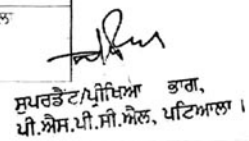 ਲਾ
ਸੁਪਰਡੈਂਟ/ਪ੍ਰੀਖਿਆ ਭਾਗ,
ਪੀ.ਐਸ.ਪੀ.ਸੀ.ਐਲ, ਪਟਿਆਲਾ।